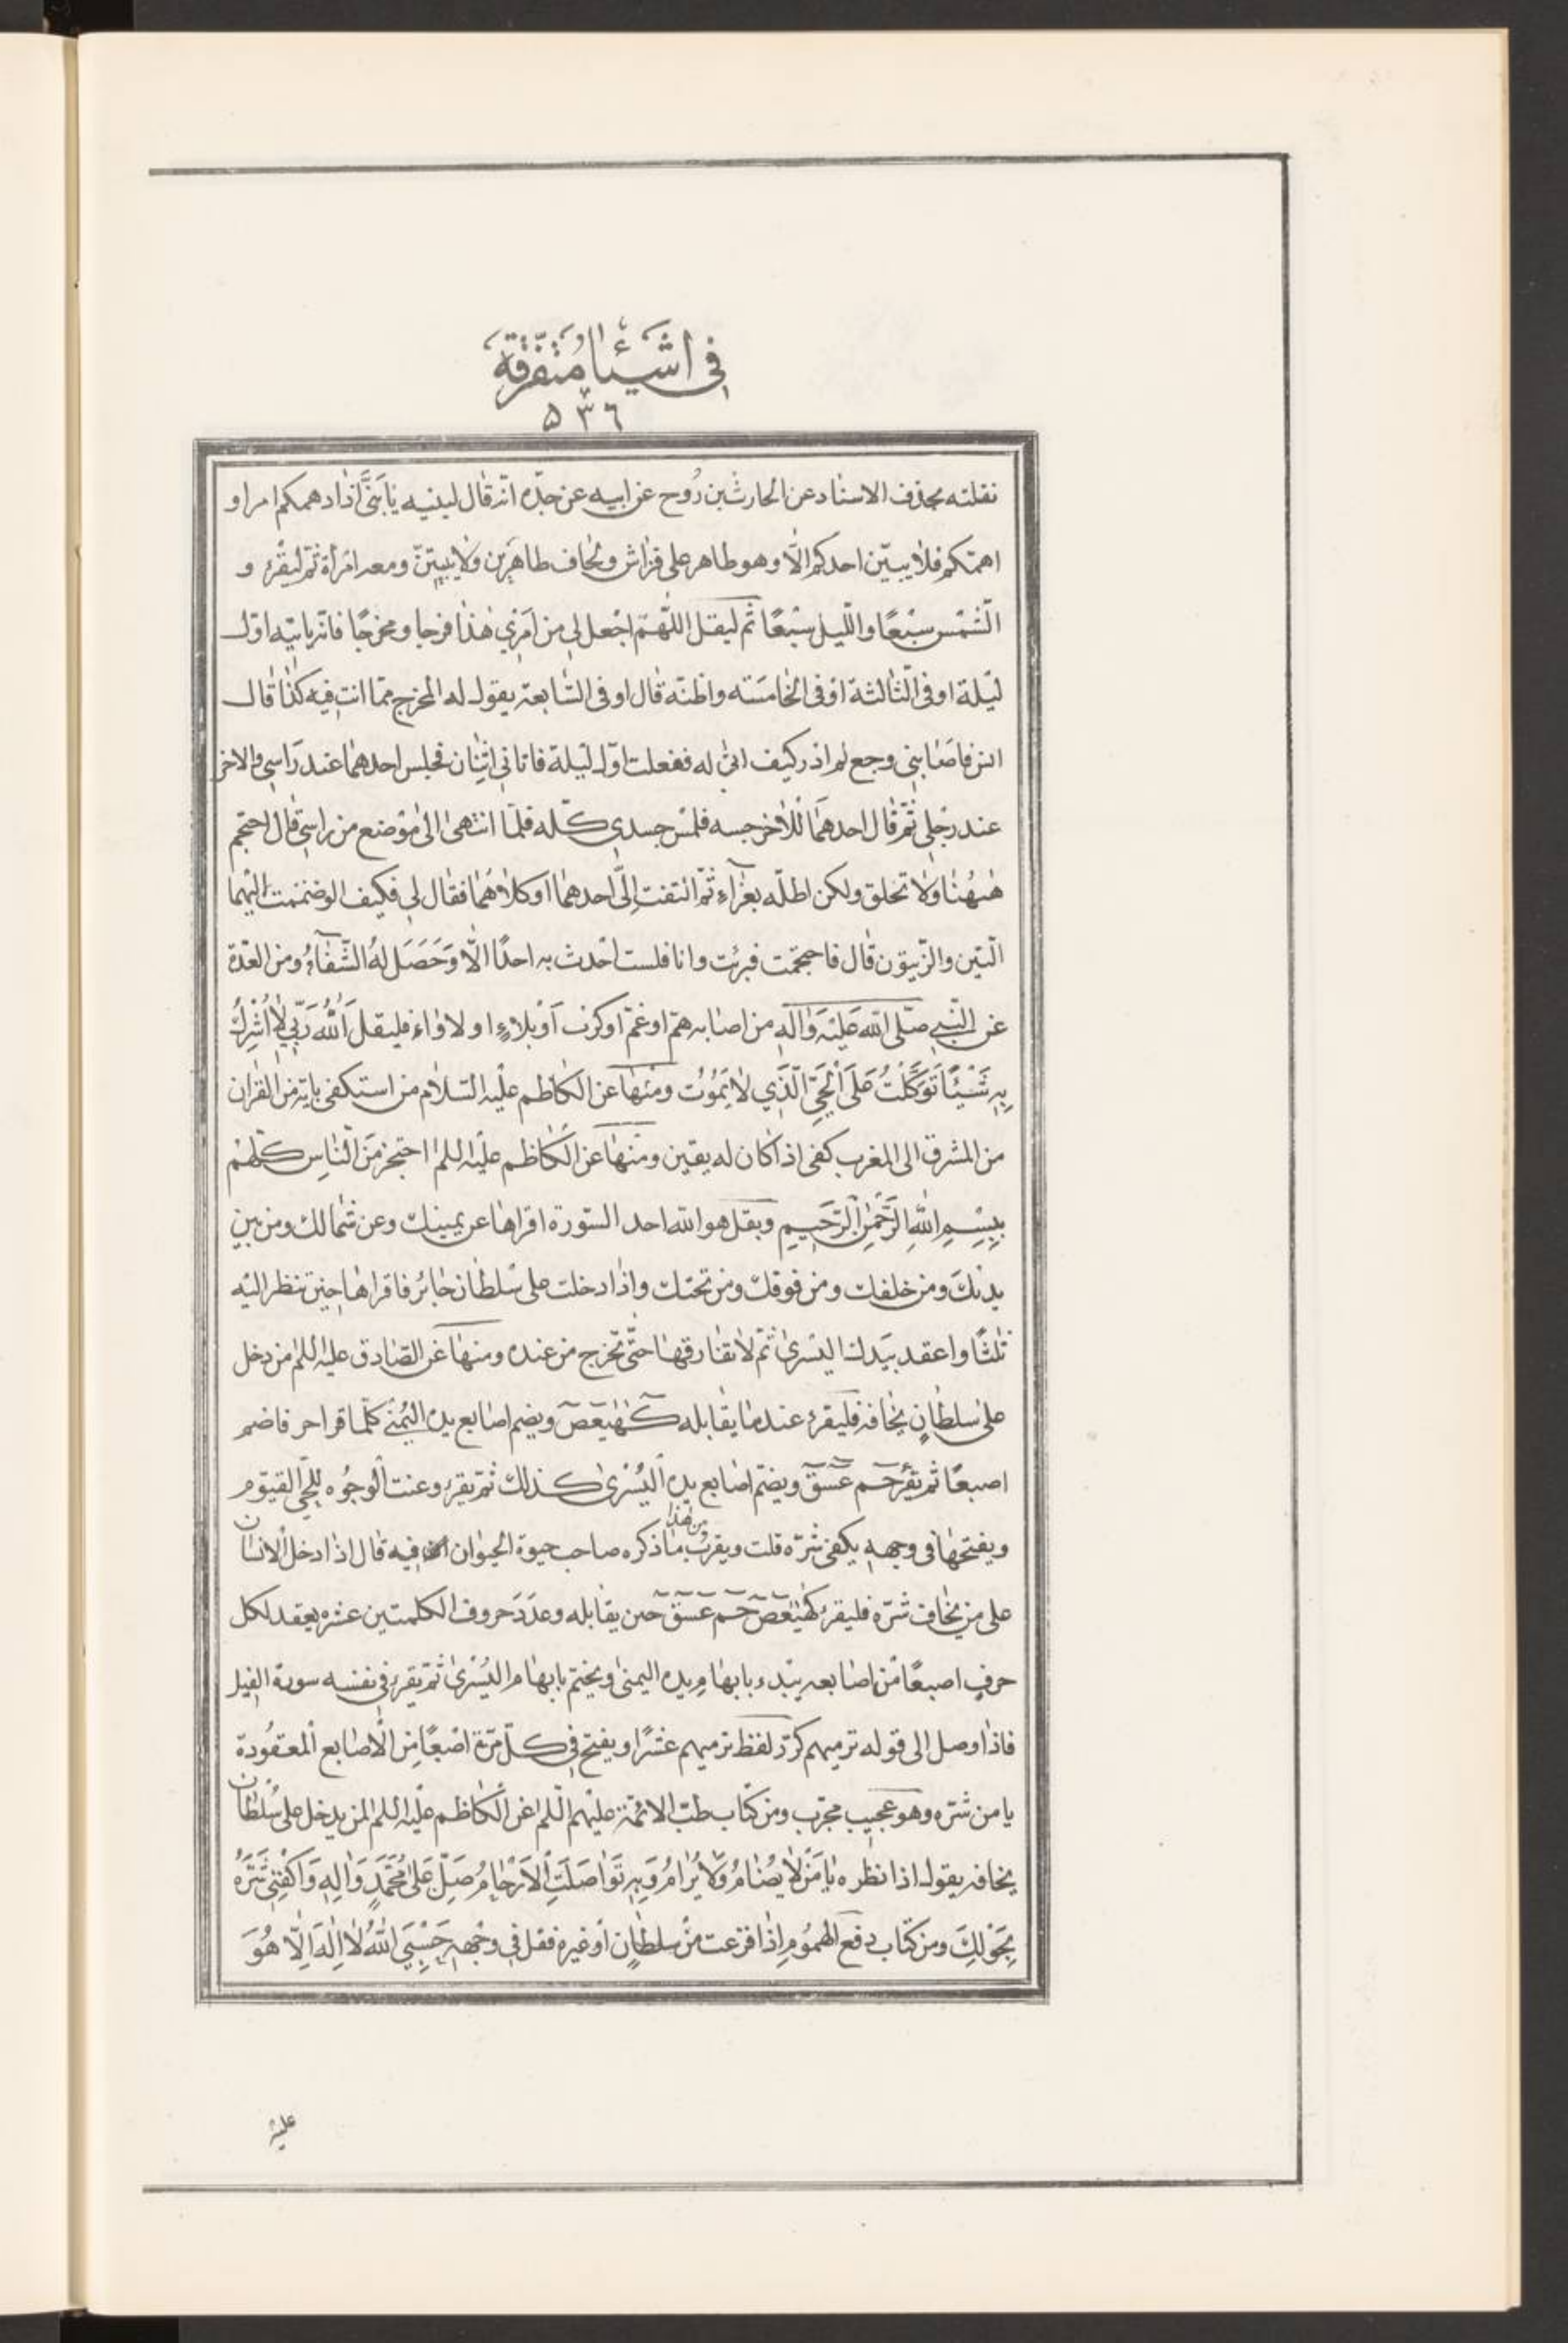 في اشياء متفرقة
٥٣٦
نقلته بحذف الاسناد عن الحارث بن روح عن ابيه عن جده انه قال لبنيه يا بني اذا دهمكم امر او
اهمكم فلا يبيتن احدكم الا وهو طاهر على فراش ولحاف طاهرين ولا يبيتن ومعه امراة ثم ليقرء و
الشمس سبعا والليل سبعا ثم ليقل اللهم اجعل لي من امري هذا فرجا ومخرجا فانه ياتيه اول
ليلة او في الثالثة او في الخامسة واظنه قال او في السابعة يقول له المخرج مما انت فيه كذا قال
انس فاصابني وجع لم ادر كيف اتى له ففعلت اول ليلة فاتاني اثنان فجلس احدهما عند راسي والاخر
عند رجلي ثم قال احدهما للاخر جسه فلمس جسدي كله فلما انتهى الى موضع من راسي قال احتجم
ههنا ولا تحلق ولكن اطله بغراء ثم التفت الي احدهما او كلاهما فقال لي فكيف لو ضممت اليهما
التين والزيتون قال فاحتجمت فبرئت وانا فلست احدث به احدا الا وحصل له الشفاء ومن العدة
عن النبي صلى الله عليه واله من اصابه هم او غم او كرب او بلاء او لاواء فليقل الله ربي لا اشرك
به شيئا توكلت على الحي الذي لا يموت ومنها عن الكاظم عليه السلام من استكفى باية من القران
من المشرق الى المغرب كفي اذا كان له يقين ومنها عن الكاظم عليه السلم احتجز من الناس كلهم
ببسم الله الرحمن الرحيم وبقل هو الله احد السورة اقراها عن يمينك وعن شمالك ومن بين
يديك ومن خلفك ومن فوقك ومن تحتك واذا دخلت على سلطان جائر فاقراها حين تنظر اليه
ثلثا واعقد بيدك اليسرى ثم لا تفارقها حتى تخرج من عنده ومنها عن الصادق عليه السلم من دخل
على سلطان يخافه فليقرء عند ما يقابله كهيعص ويضم اصابع يده اليمنى كلما قرا حرفا ضم
اصبعا ثم يقرء حم عسق ويضم اصابع يده اليسرى كذلك ثم يقرء وعنت الوجوه للحي القيوم
ويفتحها في وجهه يكفى شره قلت ويقرب من هذا ما ذكره صاحب حيوة الحيوان فيه قال اذا دخل الانسان
على من يخاف شره فليقرء كهيعص حم عسق حين يقابله وعدد حروف الكلمتين عشره يعقد لكل
حرف اصبعا من اصابعه يبدء بابهام يده اليمنى ويختم بابهام اليسرى ثم يقرء في نفسه سورة الفيل
فاذا وصل الى قوله ترميهم كرر لفظ ترميهم عشرا ويفتح في كل مرة اصبعا من الاصابع المعقودة
يامن شره وهو عجيب مجرب ومن كتاب طب الائمة عليهم السلم عن الكاظم عليه السلم لمن يدخل على سلطان
يخافه يقول اذا نظره يا من لا يضام ولا يرام وبه تواصلت الارحام صل على محمد واله واكفني شره
بحولك ومن كتاب دفع الهموم اذا فزعت من سلطان او غيره فقل في وجهه حسبي الله لا اله الا هو
عليه